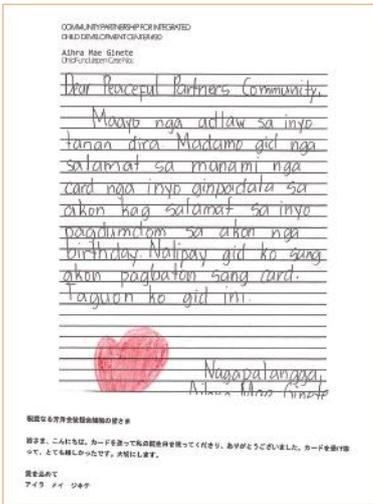 COMMUNITY PARTNERSHIP FOR INTEGRATED
CHILD DEVELOPMENT CENTER
Aihra Mae Ginete
Case No:
Dear Peaceful Partners Community,
Maayo nga adlaw sa inyo
tanan dira. Madamo gid nga
salamat sa manami nga
card nga inyo ginpadala sa
akon kag salamat sa inyo
pagdumdom sa akon nga
birthday. Nalipay gid ko sang
akon pagbaton sang card.
Taguon ko gid ini.
Nagapalangga,
Aihra Mae Ginete
皆さま、こんにちは。カードを送って私の誕生日を祝ってくださり、ありがとうございました。カードを受け取
って、とても嬉しかったです。大切にします。
愛を込めて
アイラ メイ ジネテ